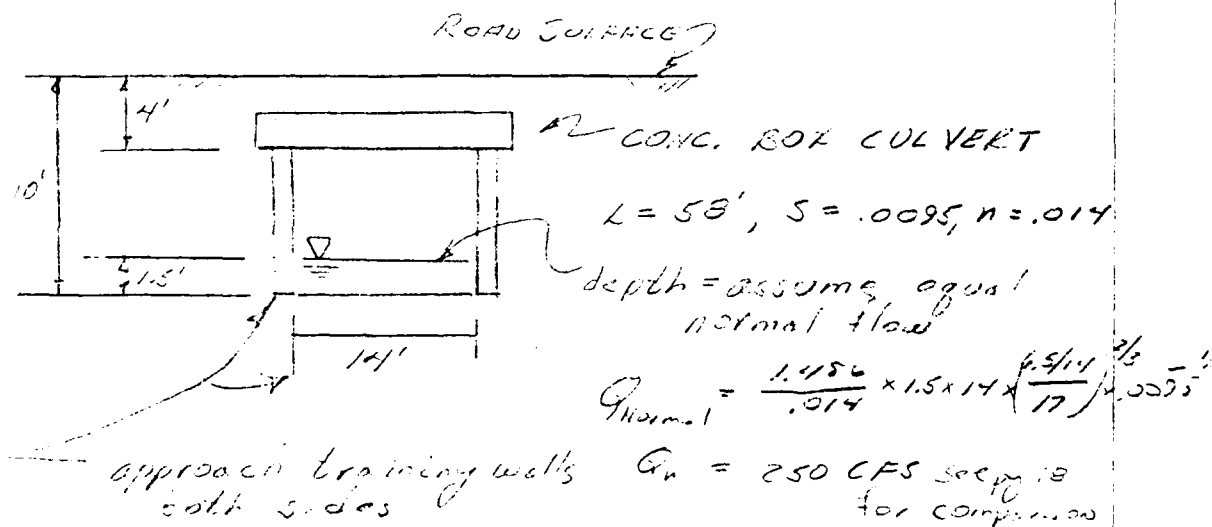 ROAD SURFACE
4'
10'
CONC. BOX CULVERT
L = 58', S = .0095, n = .014
1.5'
depth = assume equal
normal flow
14'
Qnormal = 1.486/.014 × 1.5 × 14 × (1.5×14/17)^2/3 × .0095^1/2
approach training walls
both sides
Qn = 250 CFS see pg 18
for comparison